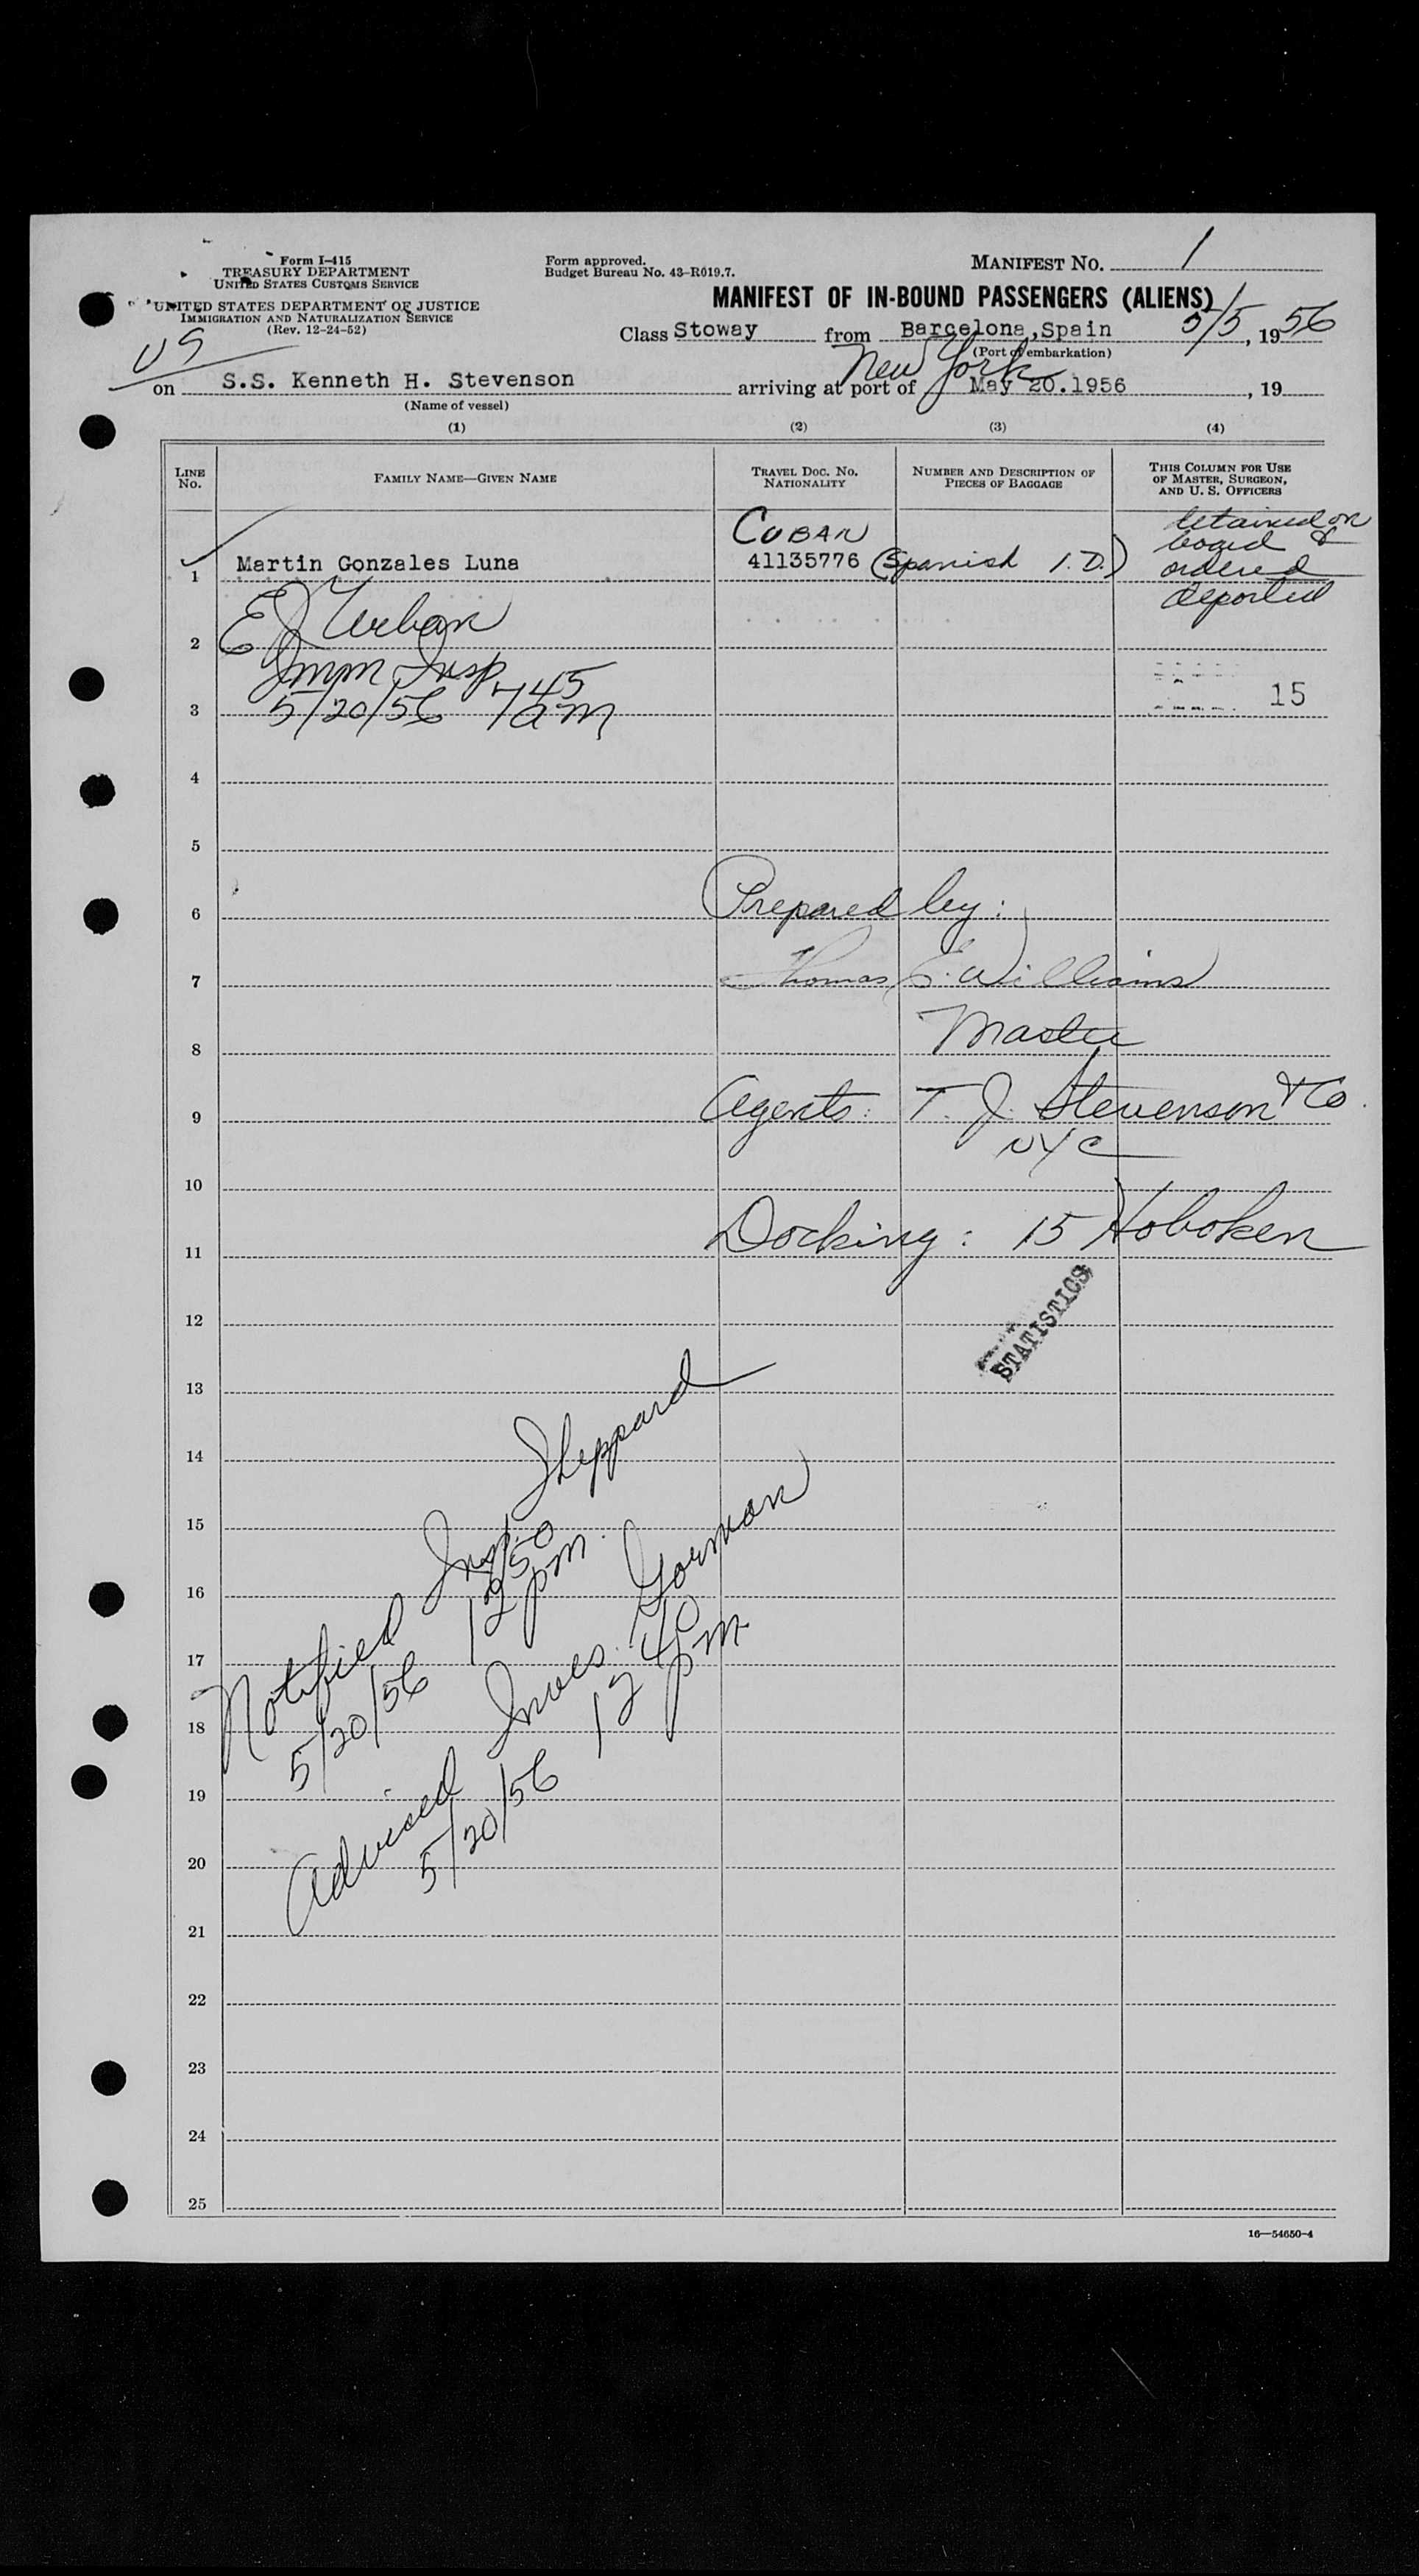 Form I-415
TREASURY DEPARTMENT
UNITED STATES CUSTOMS SERVICE
UNITED STATES DEPARTMENT OF JUSTICE
IMMIGRATION AND NATURALIZATION SERVICE
(Rev. 12-24-52)
Form approved.
Budget Bureau No. 43-R019.7.
MANIFEST NO. 1
MANIFEST OF IN-BOUND PASSENGERS (ALIENS)
Class Stoway from Barcelona, Spain 5/5, 1956
(Port of embarkation)
US
on S.S. Kenneth H. Stevenson arriving at port of New York May 20.1956, 19
(Name of vessel)
(1) (2) (3) (4)
LINE NO.
FAMILY NAME—GIVEN NAME
TRAVEL DOC. NO.
NATIONALITY
NUMBER AND DESCRIPTION OF
PIECES OF BAGGAGE
THIS COLUMN FOR USE
OF MASTER, SURGEON,
AND U. S. OFFICERS
CUBAN
1 Martin Gonzales Luna 41135776 (Spanish I.D.)
detained on
board &
ordered
deported
E J Urban
2
Imm Insp
3 5/20/56 745 am
15
4
5
6 Prepared by:
7 Thomas E. Williams
8 Master
9 Agents: T. J. Stevenson & Co.
NYC
10
11 Docking: 15 Hoboken
STATISTICS
12
13
14
15
16
17
18
19
20
21
22
23
24
25
Notified Insp. Sheppard
5/20/56 1250 pm.
Advised Inves. Gorman
5/20/56 1240 pm
16—54650-4